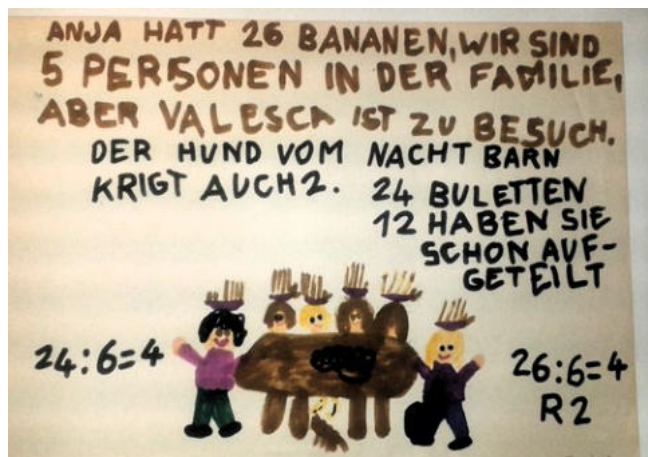 ANJA HATT 26 BANANEN, WIR SIND
5 PERSONEN IN DER FAMILIE,
ABER VALESCA IST ZU BESUCH.
DER HUND VOM NACHT BARN
KRIGT AUCH 2.
24 BULETTEN
12 HABEN SIE
SCHON AUF-
GETEILT
24:6=4
26:6=4
R2